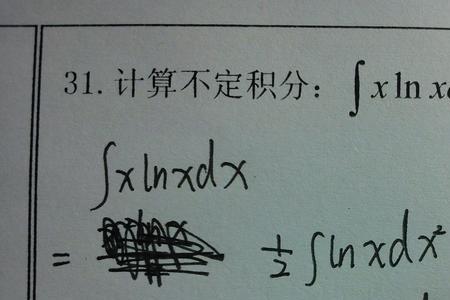 31. 计算不定积分: ∫x ln x
∫xlnxdx
= ½∫lnxdx²